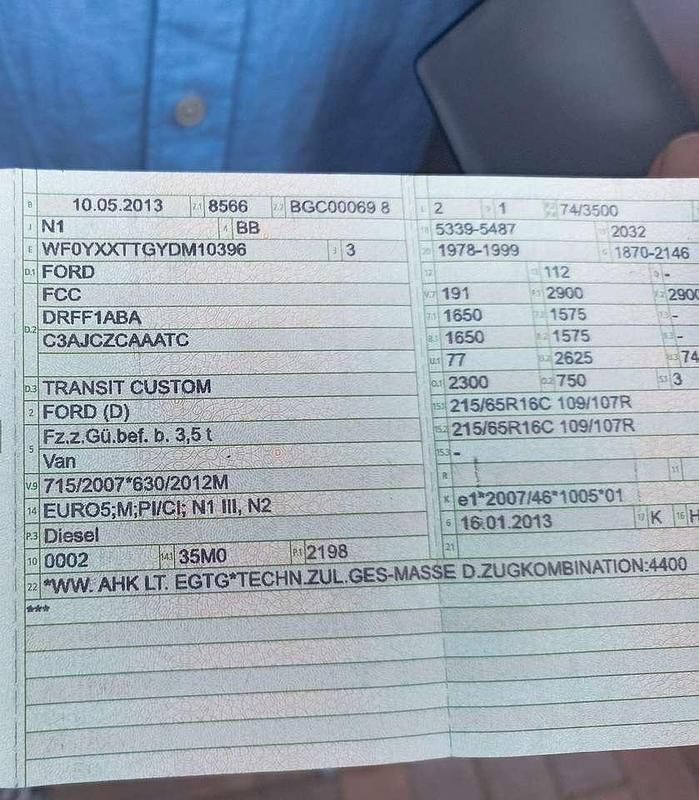 B 10.05.2013 2.1 8566 2.2 BGC00069 8
J N1 4 BB
E WF0YXXTTGYDM10396 3 3
D.1 FORD
FCC
D.2 DRFF1ABA
C3AJCZCAAATC
D.3 TRANSIT CUSTOM
2 FORD (D)
5 Fz.z.Gü.bef. b. 3,5 t
Van
V.9 715/2007*630/2012M
14 EURO5;M;PI/CI; N1 III, N2
P.3 Diesel
10 0002 14.1 35M0 P.1 2198
22 *WW. AHK LT. EGTG*TECHN.ZUL.GES-MASSE D.ZUGKOMBINATION:4400
***
L 2 9 1 74/3500
18 5339-5487 19 2032
20 1978-1999 G 1870-2146
12 13 112 -
V.7 191 F.1 2900 F.2 2900
7.1 1650 7.2 1575 7.3 -
8.1 1650 8.2 1575 8.3 -
U.1 77 U.2 2625 U.3 74
O.1 2300 O.2 750 S.1 3
15.1 215/65R16C 109/107R
15.2 215/65R16C 109/107R
15.3 -
R 11
K e1*2007/46*1005*01
6 16.01.2013 17 K 16 H
21